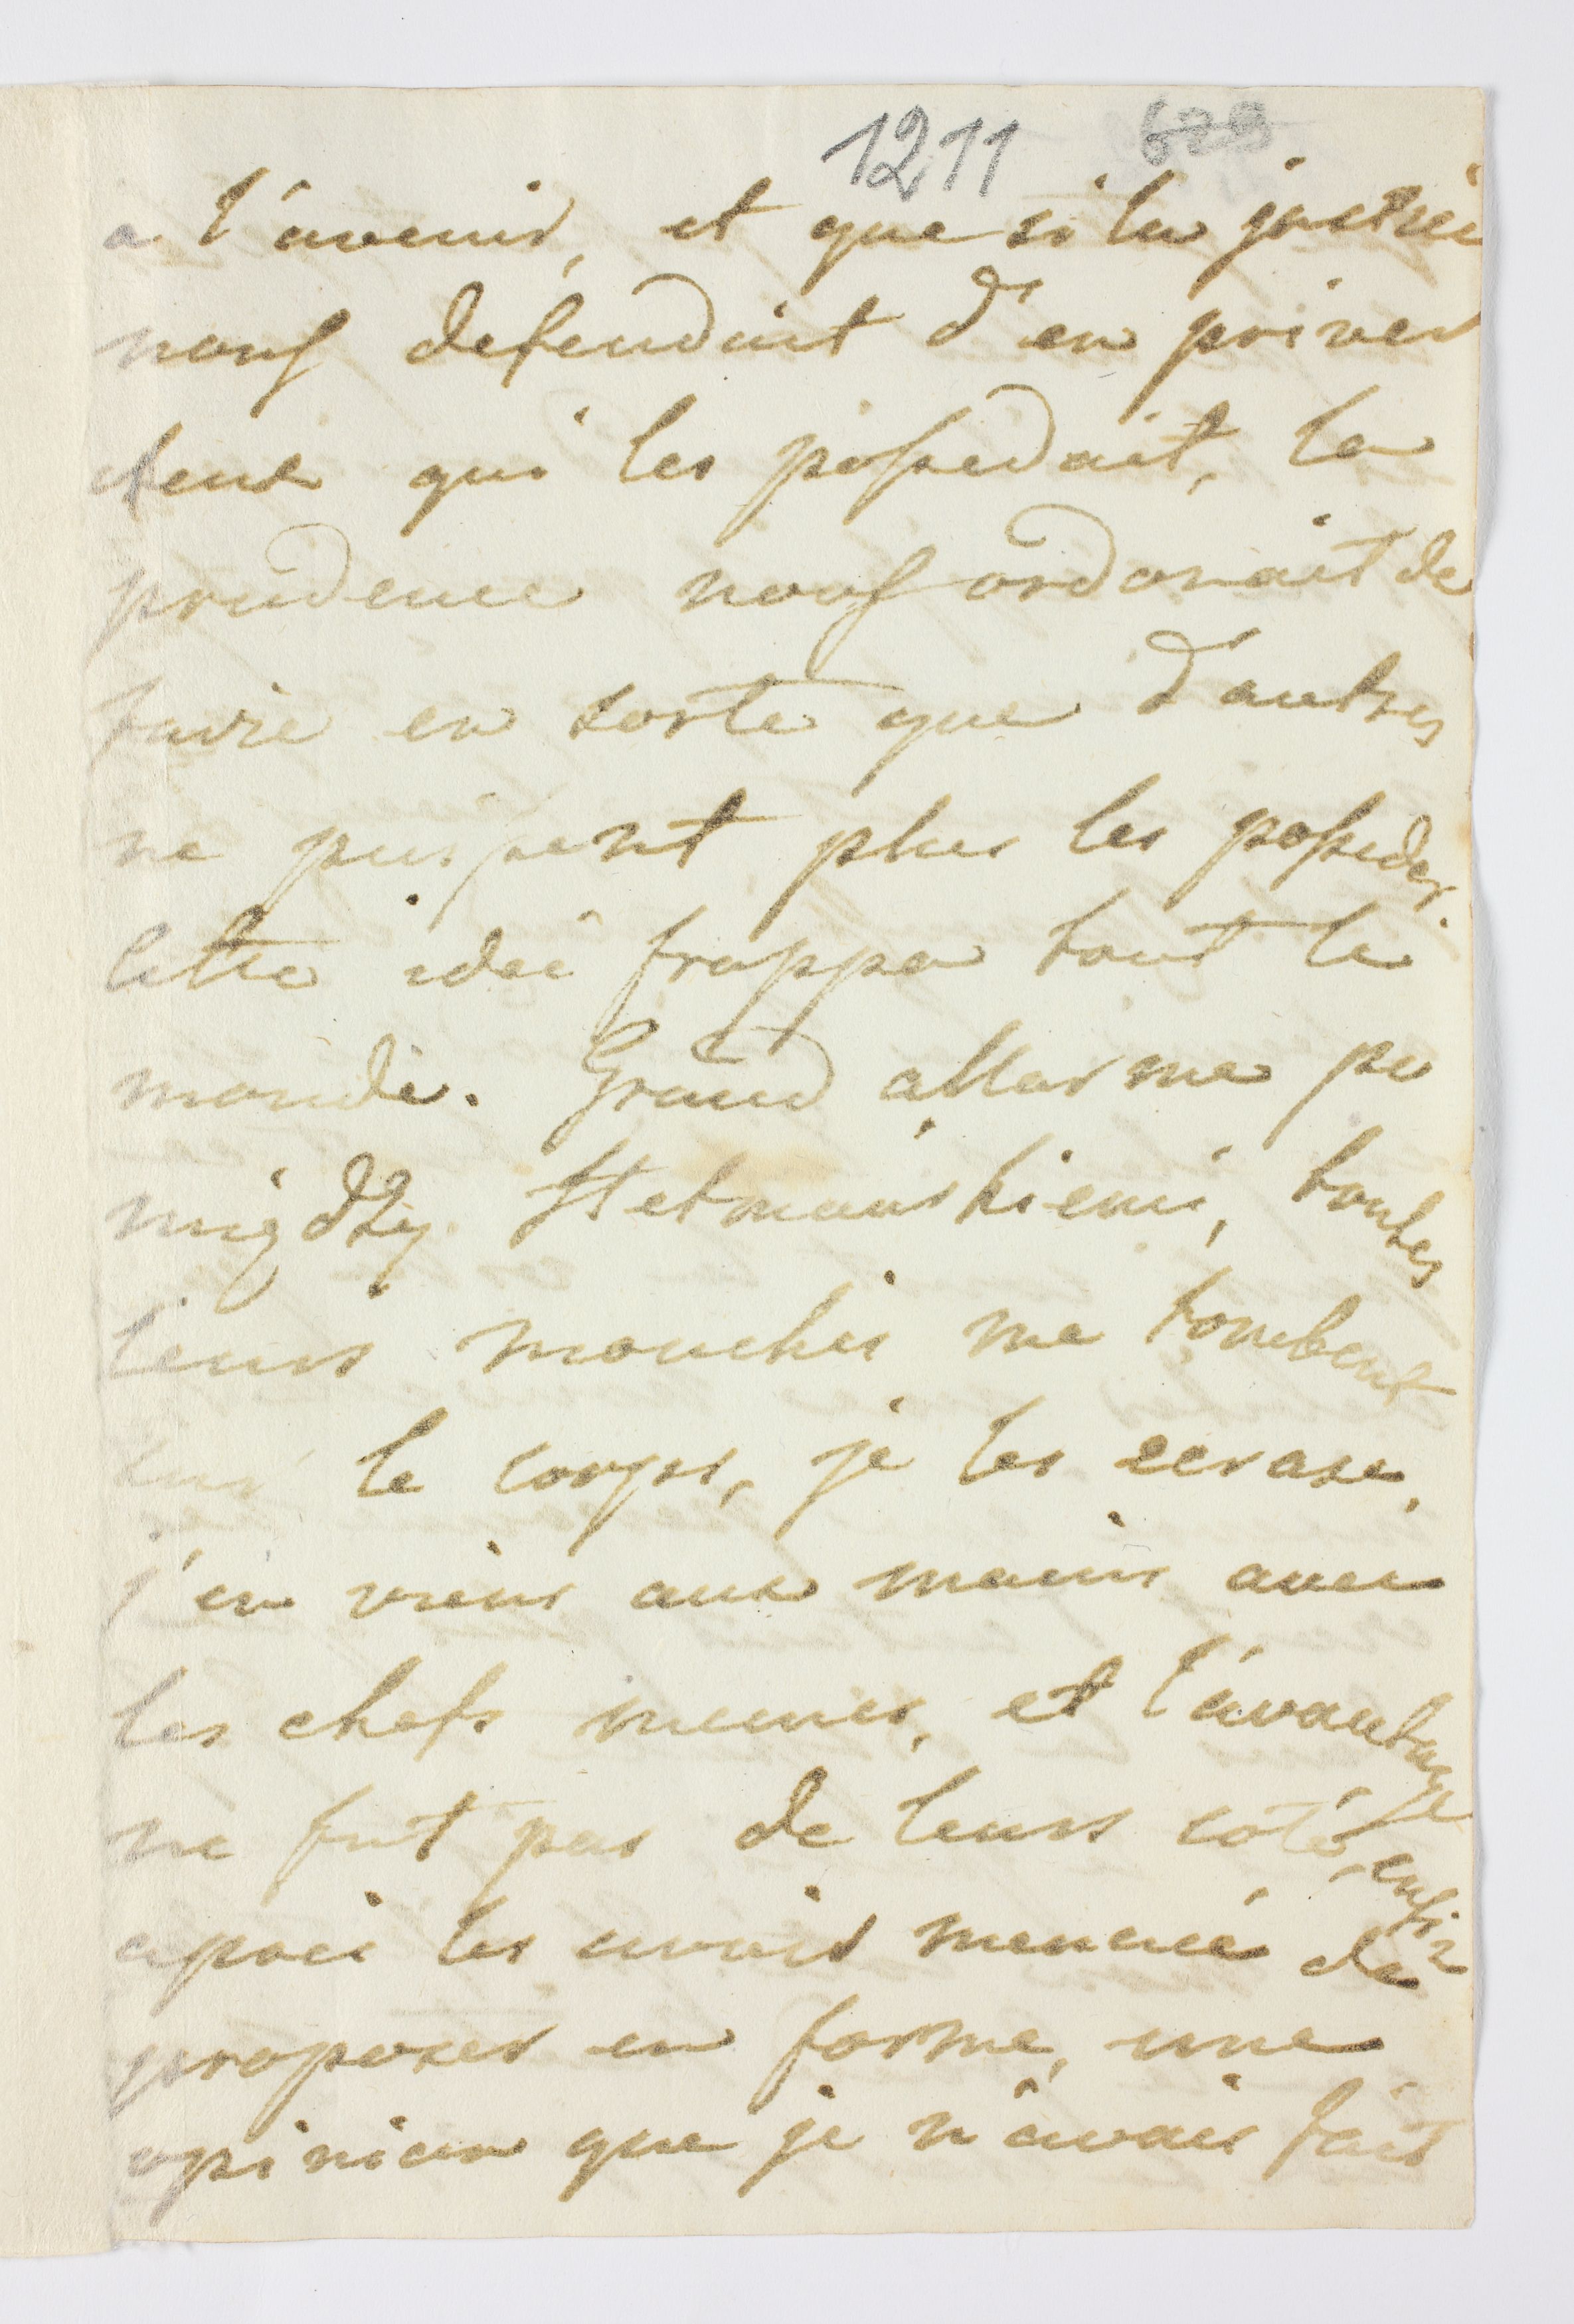 1211 629
a l'avenir, et que si la justice
nous defendait d'en priver
ceux qui les possedait, la
prudence nous ordonait de
faire en sorte que d'autres
ne puissent plus les posseder.
Cette idée frappa tout le
monde. Grand allarme po
między Hetmanskiemi, toutes
leurs mouches me tombent
sur le corps, je les ecrase,
j'en viens aux mains avec
les chefs memes, et l'avantage
ne fut pas de leurs coté, enfin
apres les avoir menacé de
proposer en forme, une
opinion que je n'avais fait